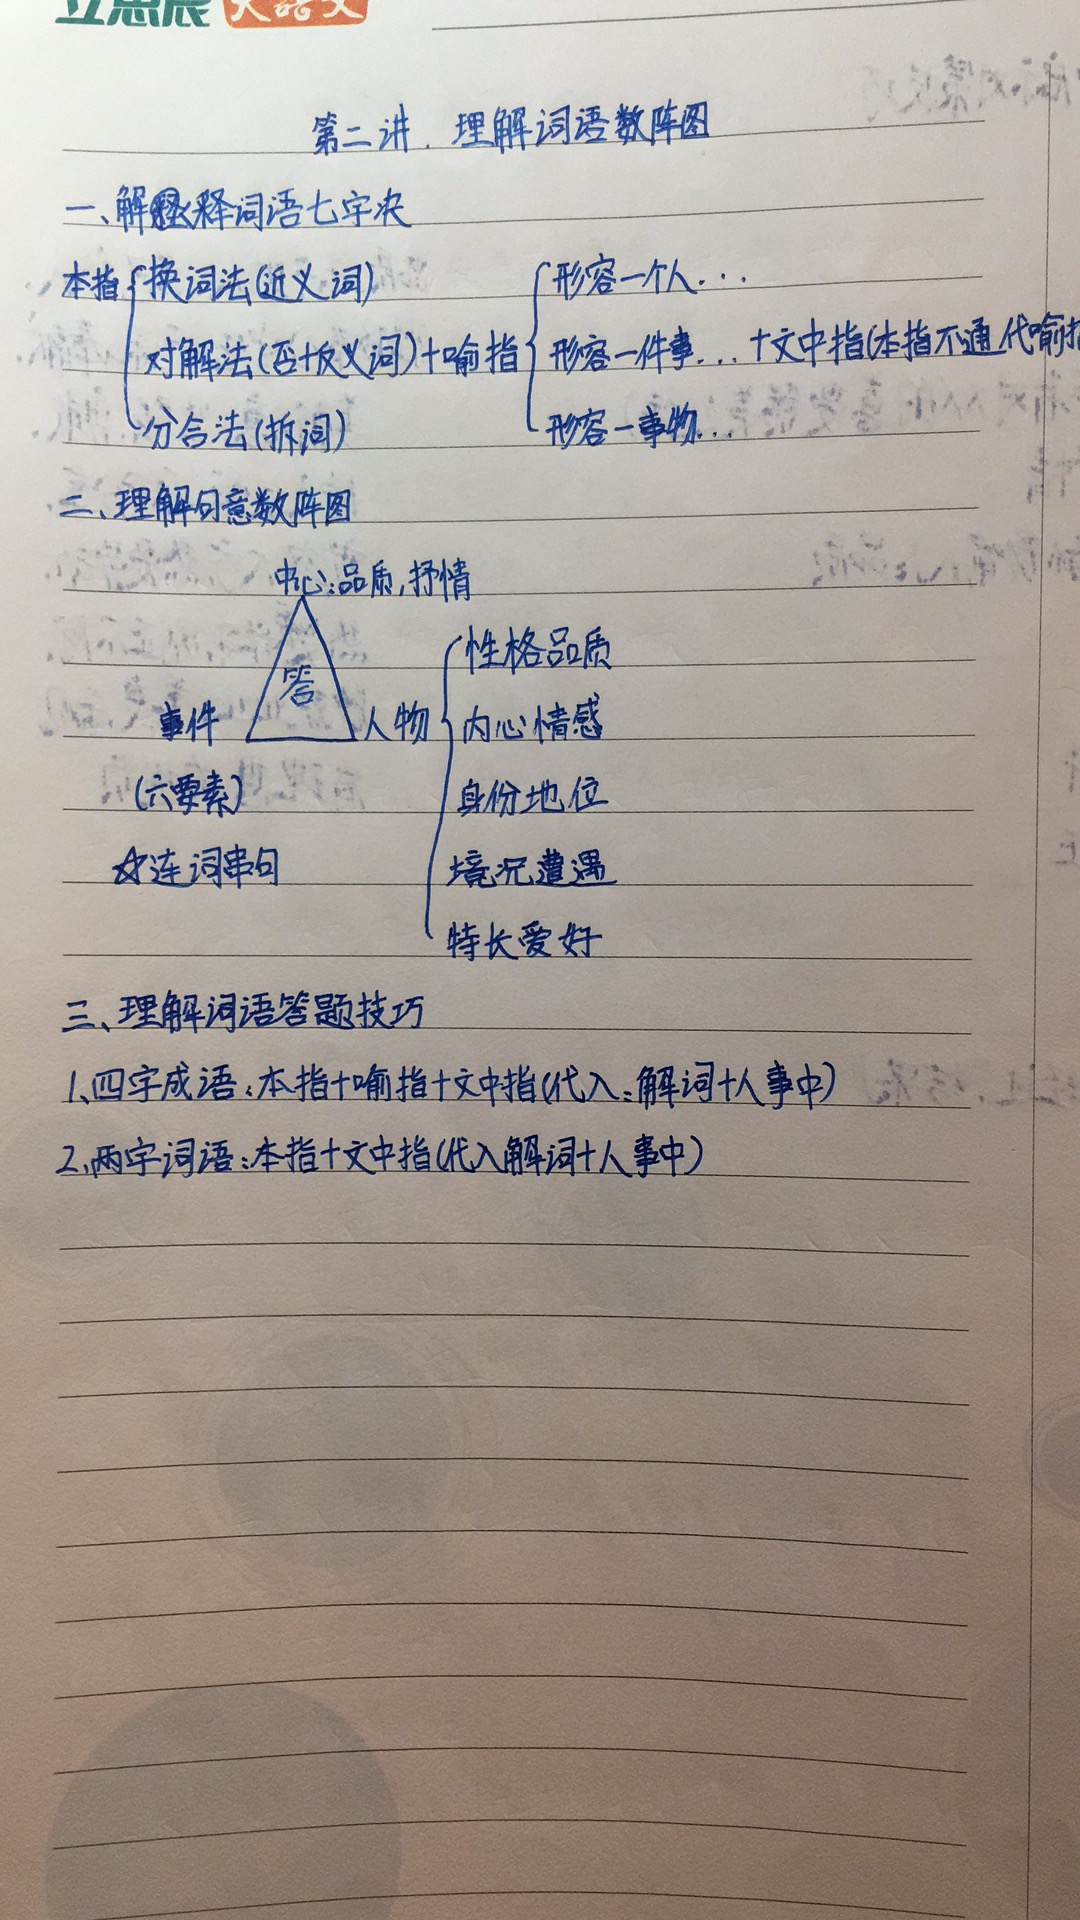 大语文
第二讲. 理解词语数阵图
一、解释词语七字决
本指{换词法(近义词) {形容一个人...
对解法(否+反义词)+喻指 形容一件事... +文中指(本指不通代喻指
分合法(拆词) 形容一事物...
二、理解句意数阵图
中心:品质,抒情
性格品质
答
事件 人物 内心情感
(六要素) 身份地位
☆连词串句 境况遭遇
特长爱好
三、理解词语答题技巧
1、四字成语:本指+喻指+文中指(代入:解词+人事中)
2、两字词语:本指+文中指(代入解词+人事中)